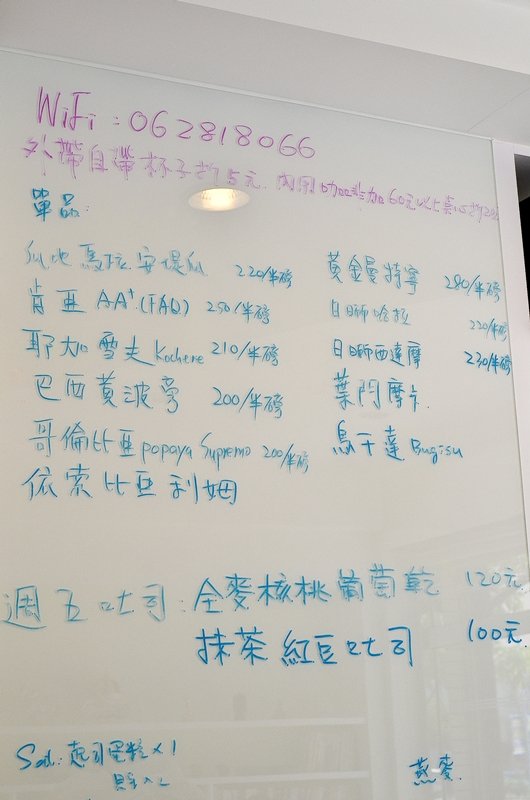 WiFi : 062818066
外帶自帶杯子折5元. 內用咖啡加60元以上
單品:
瓜地馬拉安提瓜 220/半磅
肯亞 AA⁺(FAQ) 250/半磅
耶加雪夫 Kochere 210/半磅
巴西黃波旁 200/半磅
哥倫比亞 popaya Supremo 200/半磅
依索比亞利姆
黃金曼特寧 280/半磅
日晒哈拉 220/半磅
日晒西達摩 230/半磅
葉門摩卡
烏干達 Bugisu
週五吐司: 全麥核桃葡萄乾 120元
抹茶紅豆吐司 100元
Sat: 起司蛋糕×1
燕麥